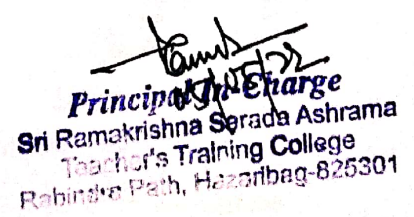 Principal In-Charge
Sri Ramakrishna Sarada Ashrama
Teacher's Training College
Rabindra Path, Hazaribag-825301